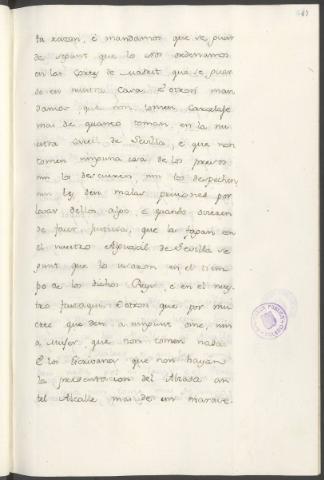 ta razon, è mandamos que se guar
de segunt que lo Nos ordenamos
en las Cortes de Madrit que se guar
de en nuestra Casa. E otrosi man
damos que non tomen Carcelaje
mas de quanto toman en la nu
estra Carcel de Sevilla, è que non
tomen ninguna cosa de los presos
nin los descuiren, nin los despechen,
nin les den malas prisiones por
levar dellos algo. E quando
de facer Justicia, que la fagan en
el nuestro Alguacil de Sevilla se
gunt que lo usaron en el tiem
po de los dichos Reyes è en el nues
tro fasta aqui. E otrosi que por mu
erte que den à ningunt ome, nin
à Muger, que non tomen nada.
E los Escrivanos que non hayan
de la presentacion del Alvala an
tel Alcalle mas de un marave